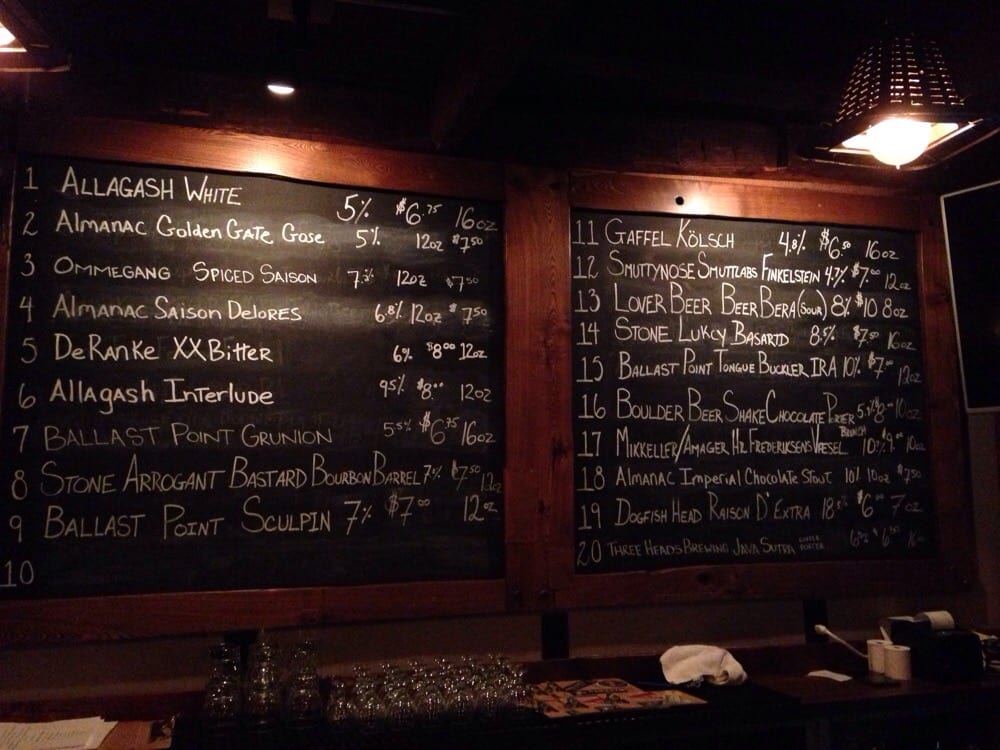 1 ALLAGASH WHITE 5% $6.75 16oz
2 Almanac Golden Gate Gose 5% 12oz $7.50
3 OMMEGANG SPICED SAISON 12oz $7.50
4 Almanac Saison Delores 6.8% 12oz $7.50
5 De Ranke XX Bitter 6% $8.00 12oz
6 Allagash Interlude 9.5% $8.00 12oz
7 BALLAST POINT GRUNION 5.5% $6.75 16oz
8 STONE ARROGANT BASTARD BOURBON BARREL 7% $7.50 12oz
9 BALLAST POINT SCULPIN 7% $7.00 12oz
10
11 GAFFEL KÖLSCH 4.8% $6.50 16oz
12 SMUTTYNOSE SMUTTLABS FINKELSTEIN 4.7% $7.00 12oz
13 LOVER BEER BEERBERA (SOUR) 8% $10 8oz
14 STONE LUKCY BASARTD 8.5% $7.50 16oz
15 BALLAST POINT TONGUE BUCKLER IRA 10% $7.00 12oz
16 BOULDER BEER SHAKE CHOCOLATE 10oz
17 MIKKELLER/AMAGER HR. FREDERIKSEN VÆSEL BRUNCH 10oz
18 Almanac Imperial Chocolate Stout 10% 10oz $7.50
19 DOGFISH HEAD RAISON D'EXTRA $6.00 7oz
20 THREE HEADS BREWING JAVA SUTRA COFFEE PORTER